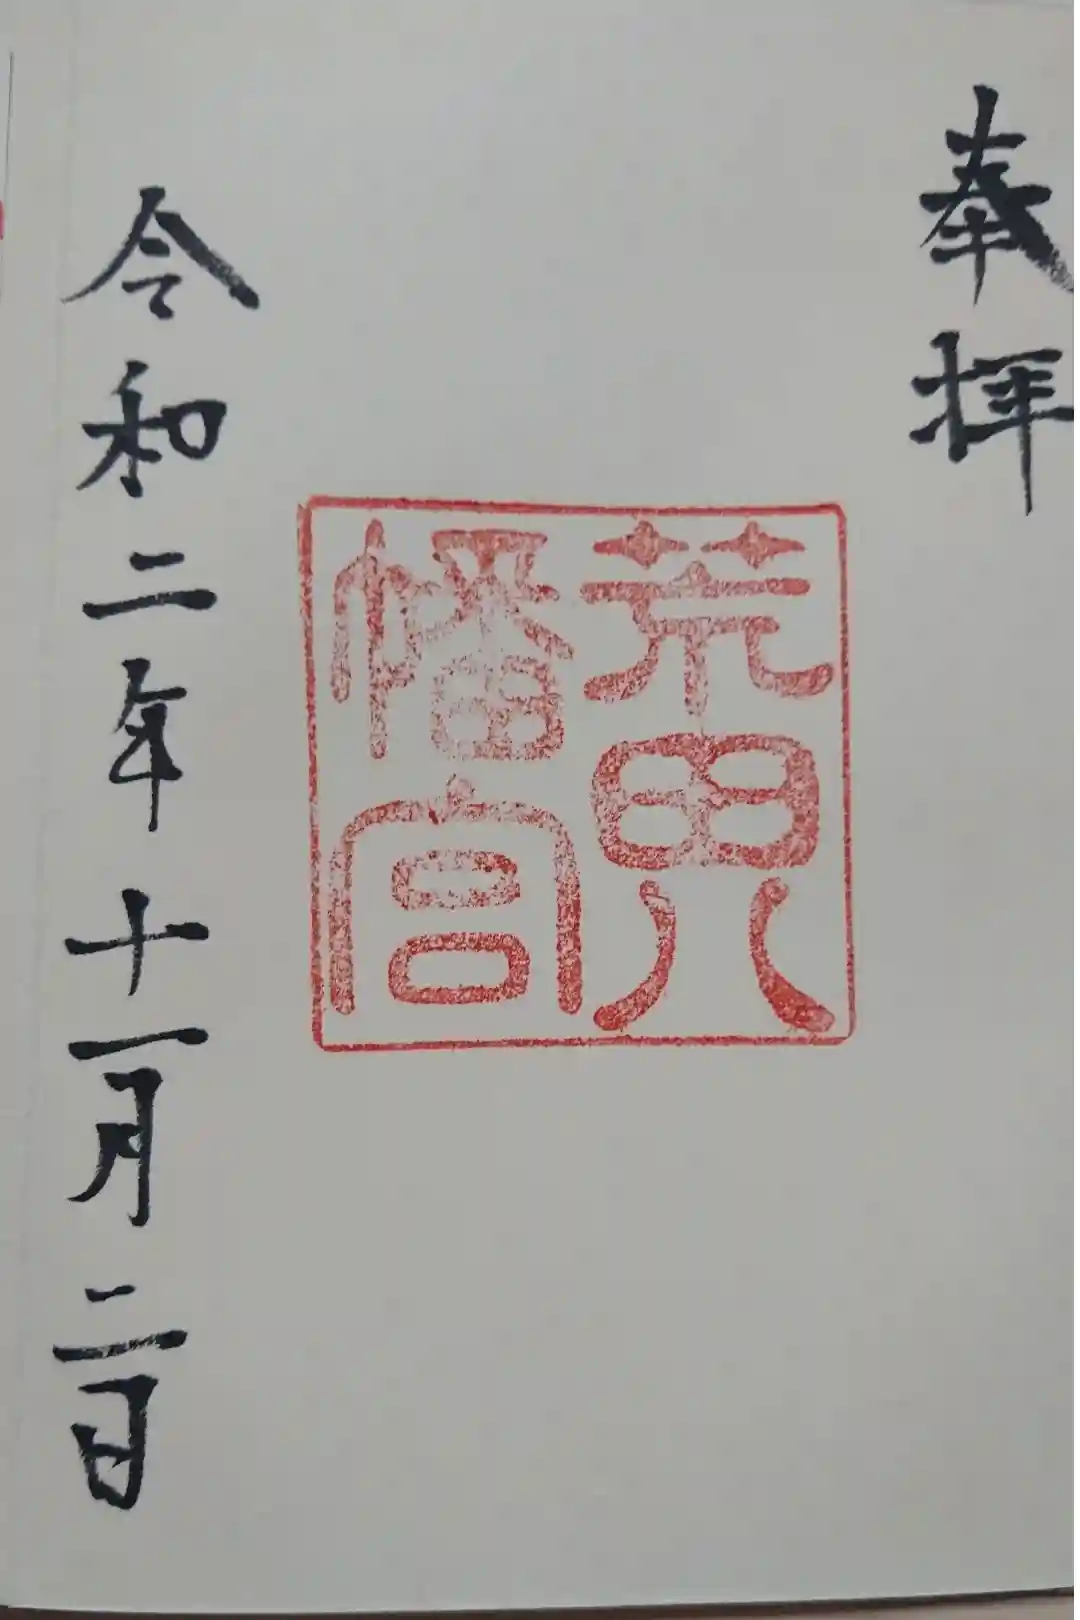 奉拝
荒田八
幡宮
令和二年十一月二日